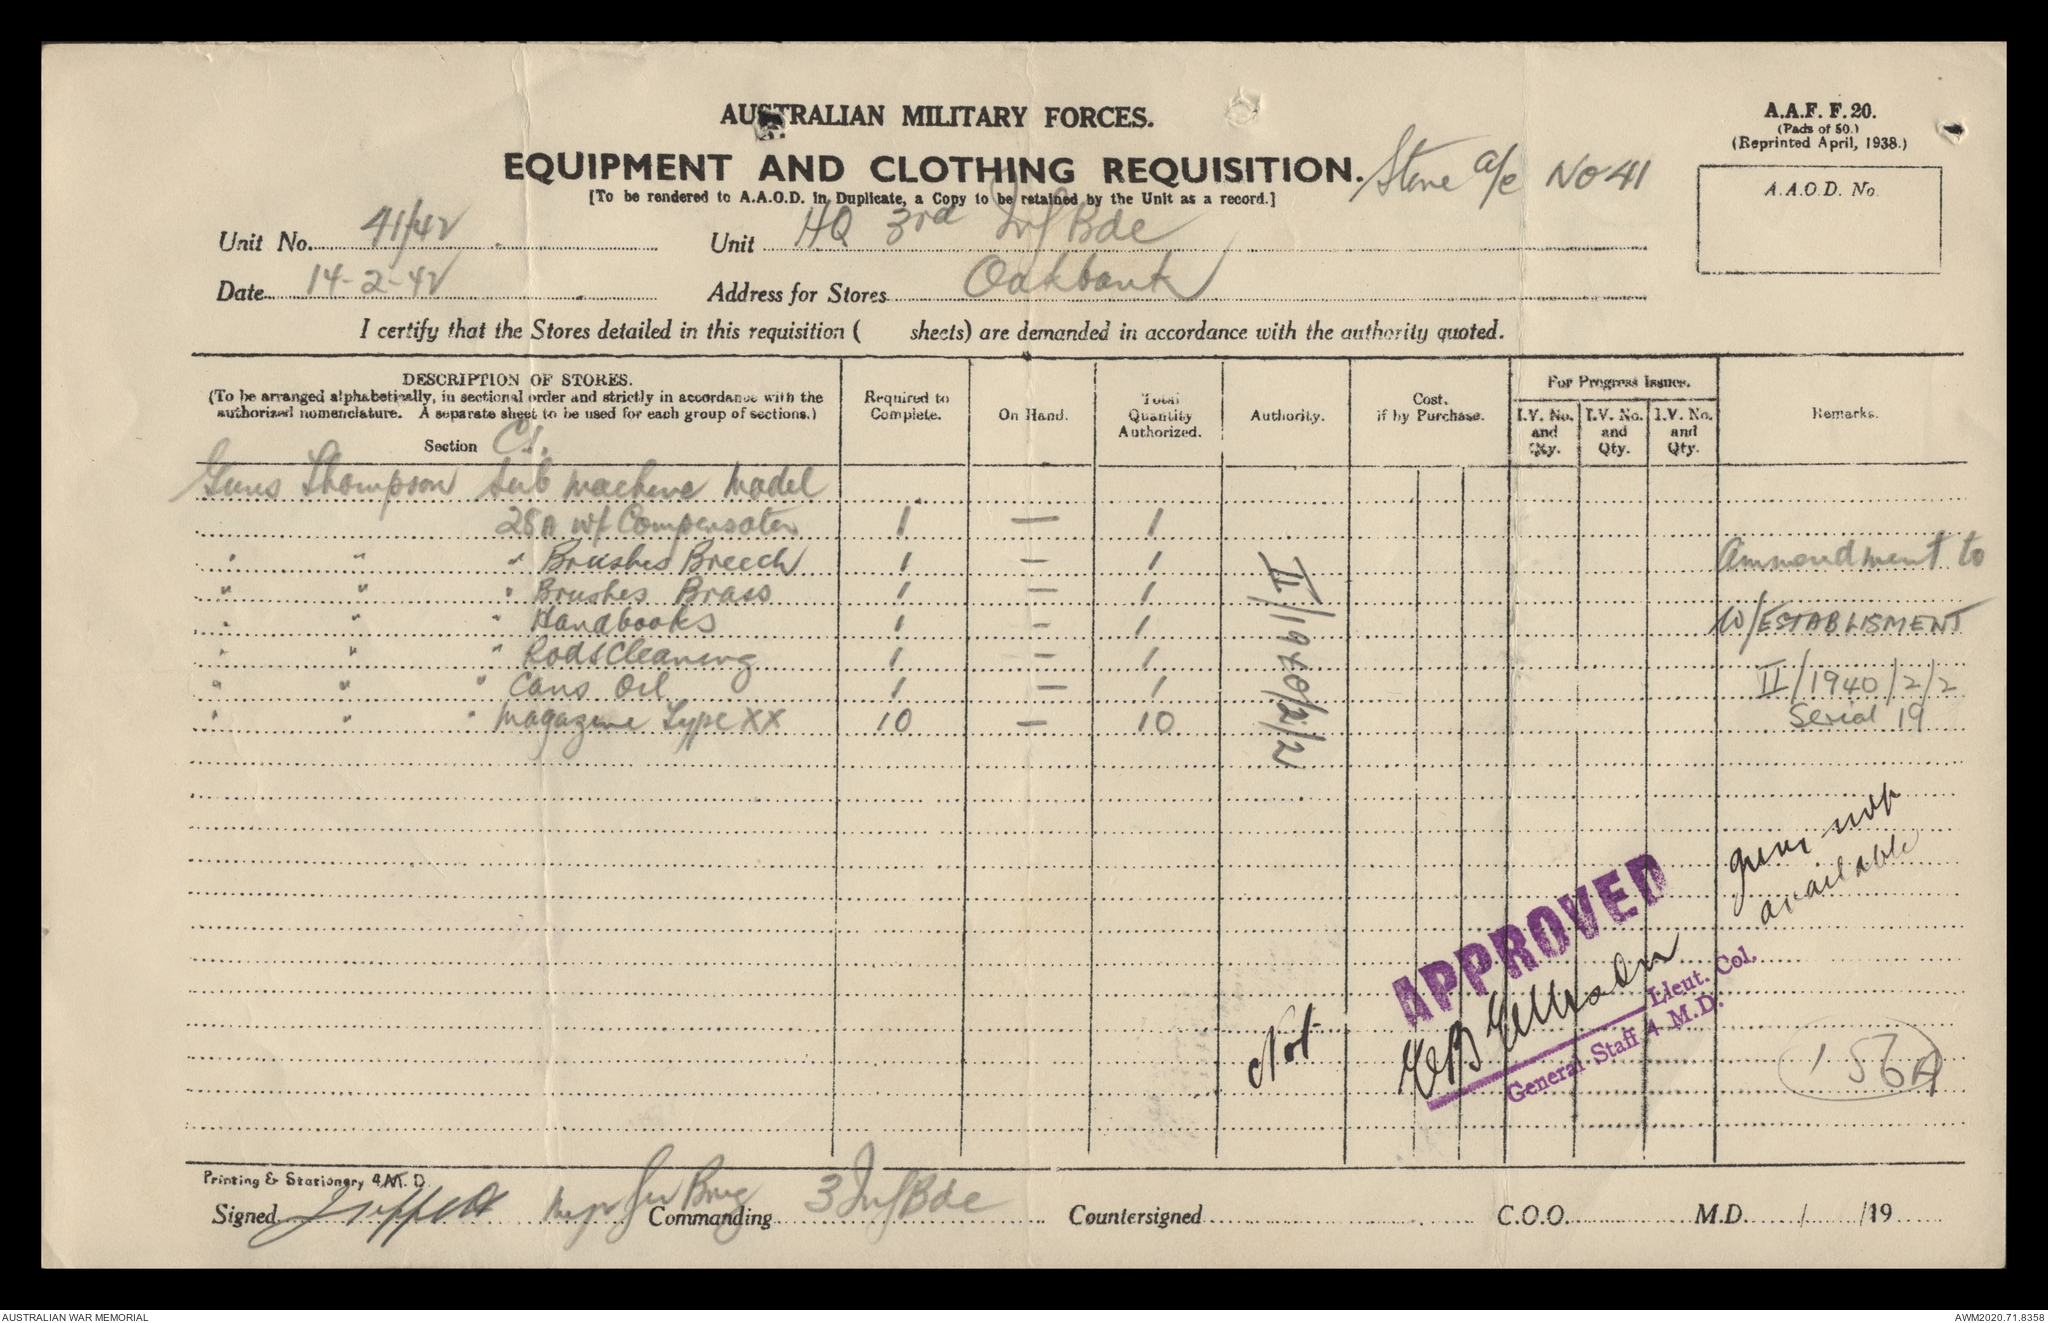 AUSTRALIAN MILITARY FORCES.
A.A.F. F.20.
(Pads of 50.)
(Reprinted April, 1938.)
EQUIPMENT AND CLOTHING REQUISITION.
Store a/c No 41
[To be rendered to A.A.O.D. in Duplicate, a Copy to be retained by the Unit as a record.]
A.A.O.D. No.
Unit No. 41/42 Unit HQ 3rd Inf Bde
Date 14-2-42 Address for Stores Oakbank
I certify that the Stores detailed in this requisition ( sheets) are demanded in accordance with the authority quoted.
DESCRIPTION OF STORES.
(To be arranged alphabetically, in sectional order and strictly in accordance with the
authorized nomenclature. A separate sheet to be used for each group of sections.)
Section C1.
Required to
Complete.
On Hand.
Total
Quantity
Authorized.
Authority.
Cost.
if by Purchase.
For Progress Issues.
I.V. No.
and
Qty.
I.V. No.
and
Qty.
I.V. No.
and
Qty.
Remarks.
Guns Thompson Sub Machine Model
28A w/ Compensator 1 — 1
" " " Brushes Breech 1 — 1 Ammendment to
" " " Brushes Brass 1 — 1
" " " Handbooks 1 - 1 W/ESTABLISMENT
" " " Rods Cleaning 1 - 1
" " " Cans Oil 1 — 1 II/1940/2/2
" " " Magazine Type XX 10 — 10 Serial 19
II/1940/2/2
guns not
available
Not
APPROVED
Lieut. Col.
General Staff 4 M.D.
156A
Printing & Stationery 4 M.D.
Signed Major for Brig Commanding 3 Inf Bde Countersigned C.O.O. M.D. / /19
AUSTRALIAN WAR MEMORIAL
AWM2020.71.8358